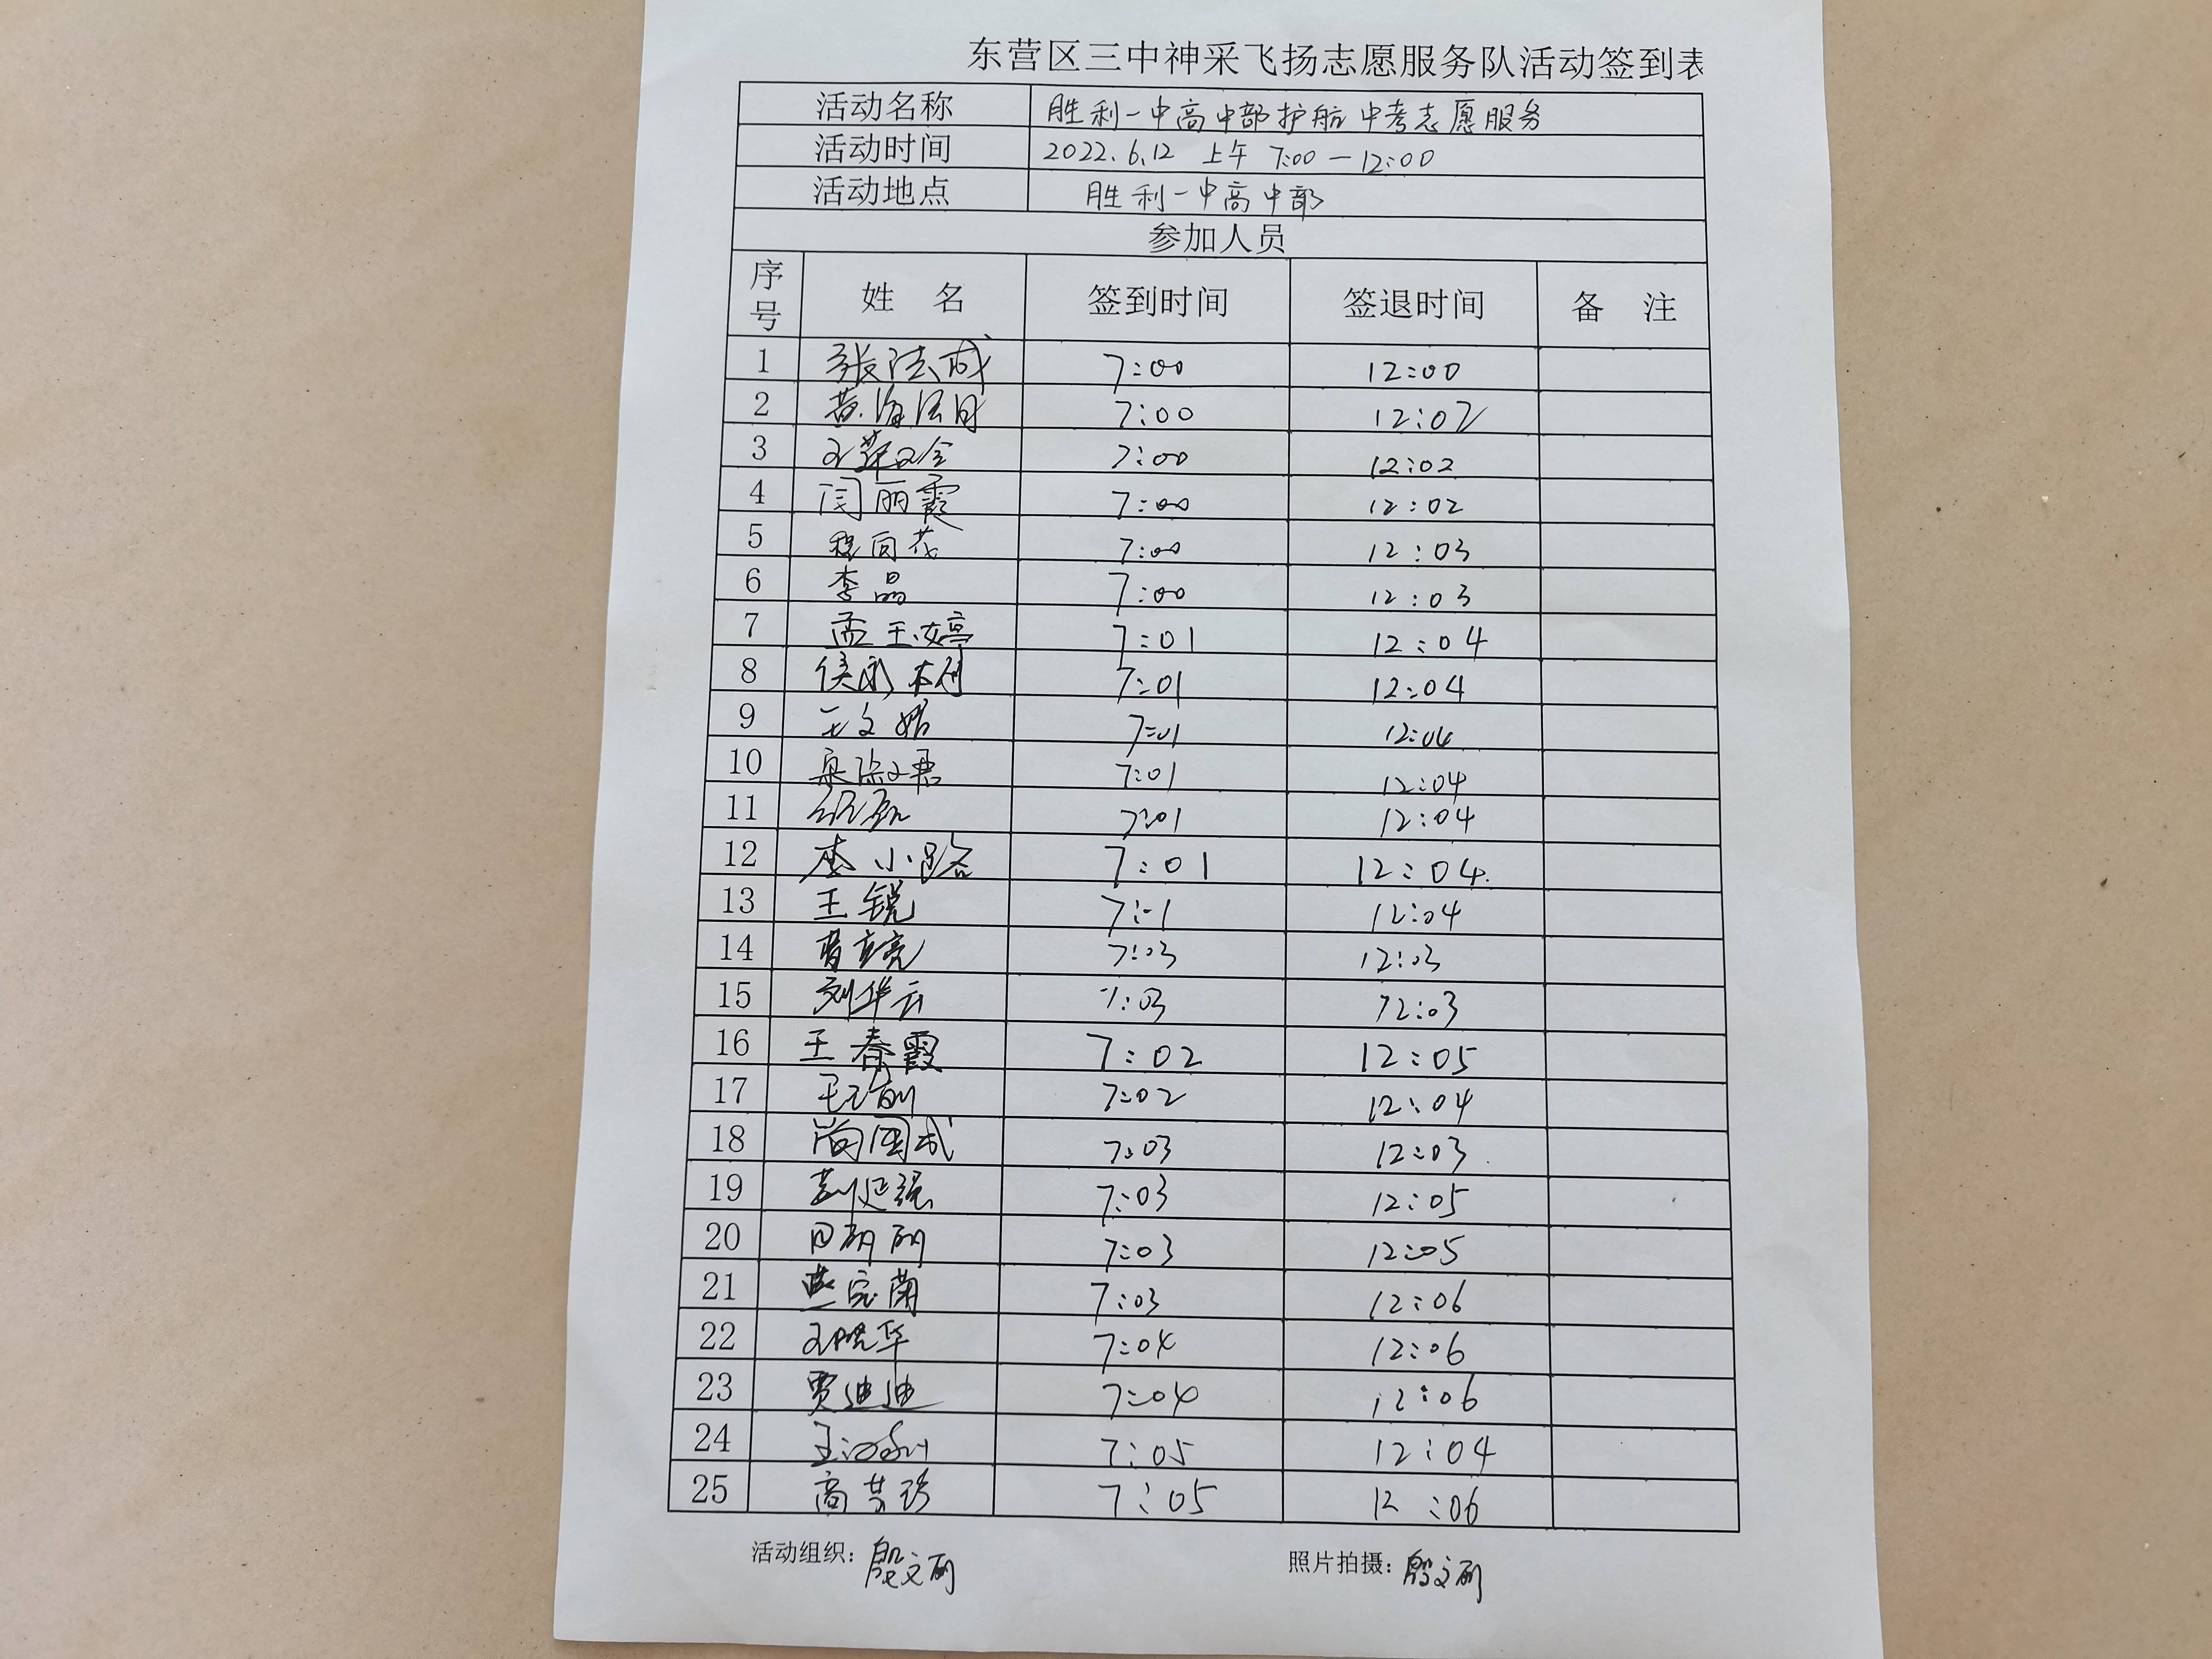 东营区三中神采飞扬志愿服务队活动签到表
活动名称 胜利一中高中部护航中考志愿服务
活动时间 2022.6.12 上午 7:00—12:00
活动地点 胜利一中高中部
参加人员
序号 姓 名 签到时间 签退时间 备 注
1 张法成 7:00 12:00
2 7:00 12:02
3 7:00 12:02
4 闫丽霞 7:00 12:02
5 程向花 7:00 12:03
6 李晶 7:00 12:03
7 孟玉婷 7:01 12:04
8 7:01 12:04
9 王文娟 7:01 12:04
10 7:01 12:04
11 7:01 12:04
12 李小路 7:01 12:04
13 王锐 7:01 12:04
14 7:03 12:03
15 刘华云 7:03 12:03
16 王春霞 7:02 12:05
17 7:02 12:04
18 尚国成 7:03 12:03
19 7:03 12:05
20 7:03 12:05
21 7:03 12:06
22 王晓华 7:04 12:06
23 贾迪迪 7:04 12:06
24 7:05 12:04
25 高芸珍 7:05 12:06
活动组织：殷文丽 照片拍摄：殷文丽